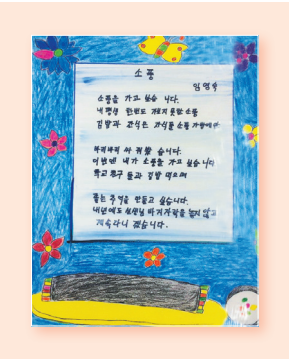 소풍
임영숙
소풍을 가고 싶습니다.
내 평생 한번도 가보지 못한 소풍
김밥과 간식은 자식들 소풍 가방에다
바리바리 싸 줘 봤습니다.
이번엔 내가 소풍을 가고 싶습니다
학교 친구들과 김밥 먹으며
좋은 추억을 만들고 싶습니다.
내년에도 선생님 바지가랑을 놓지 않고
계속 다니겠습니다.